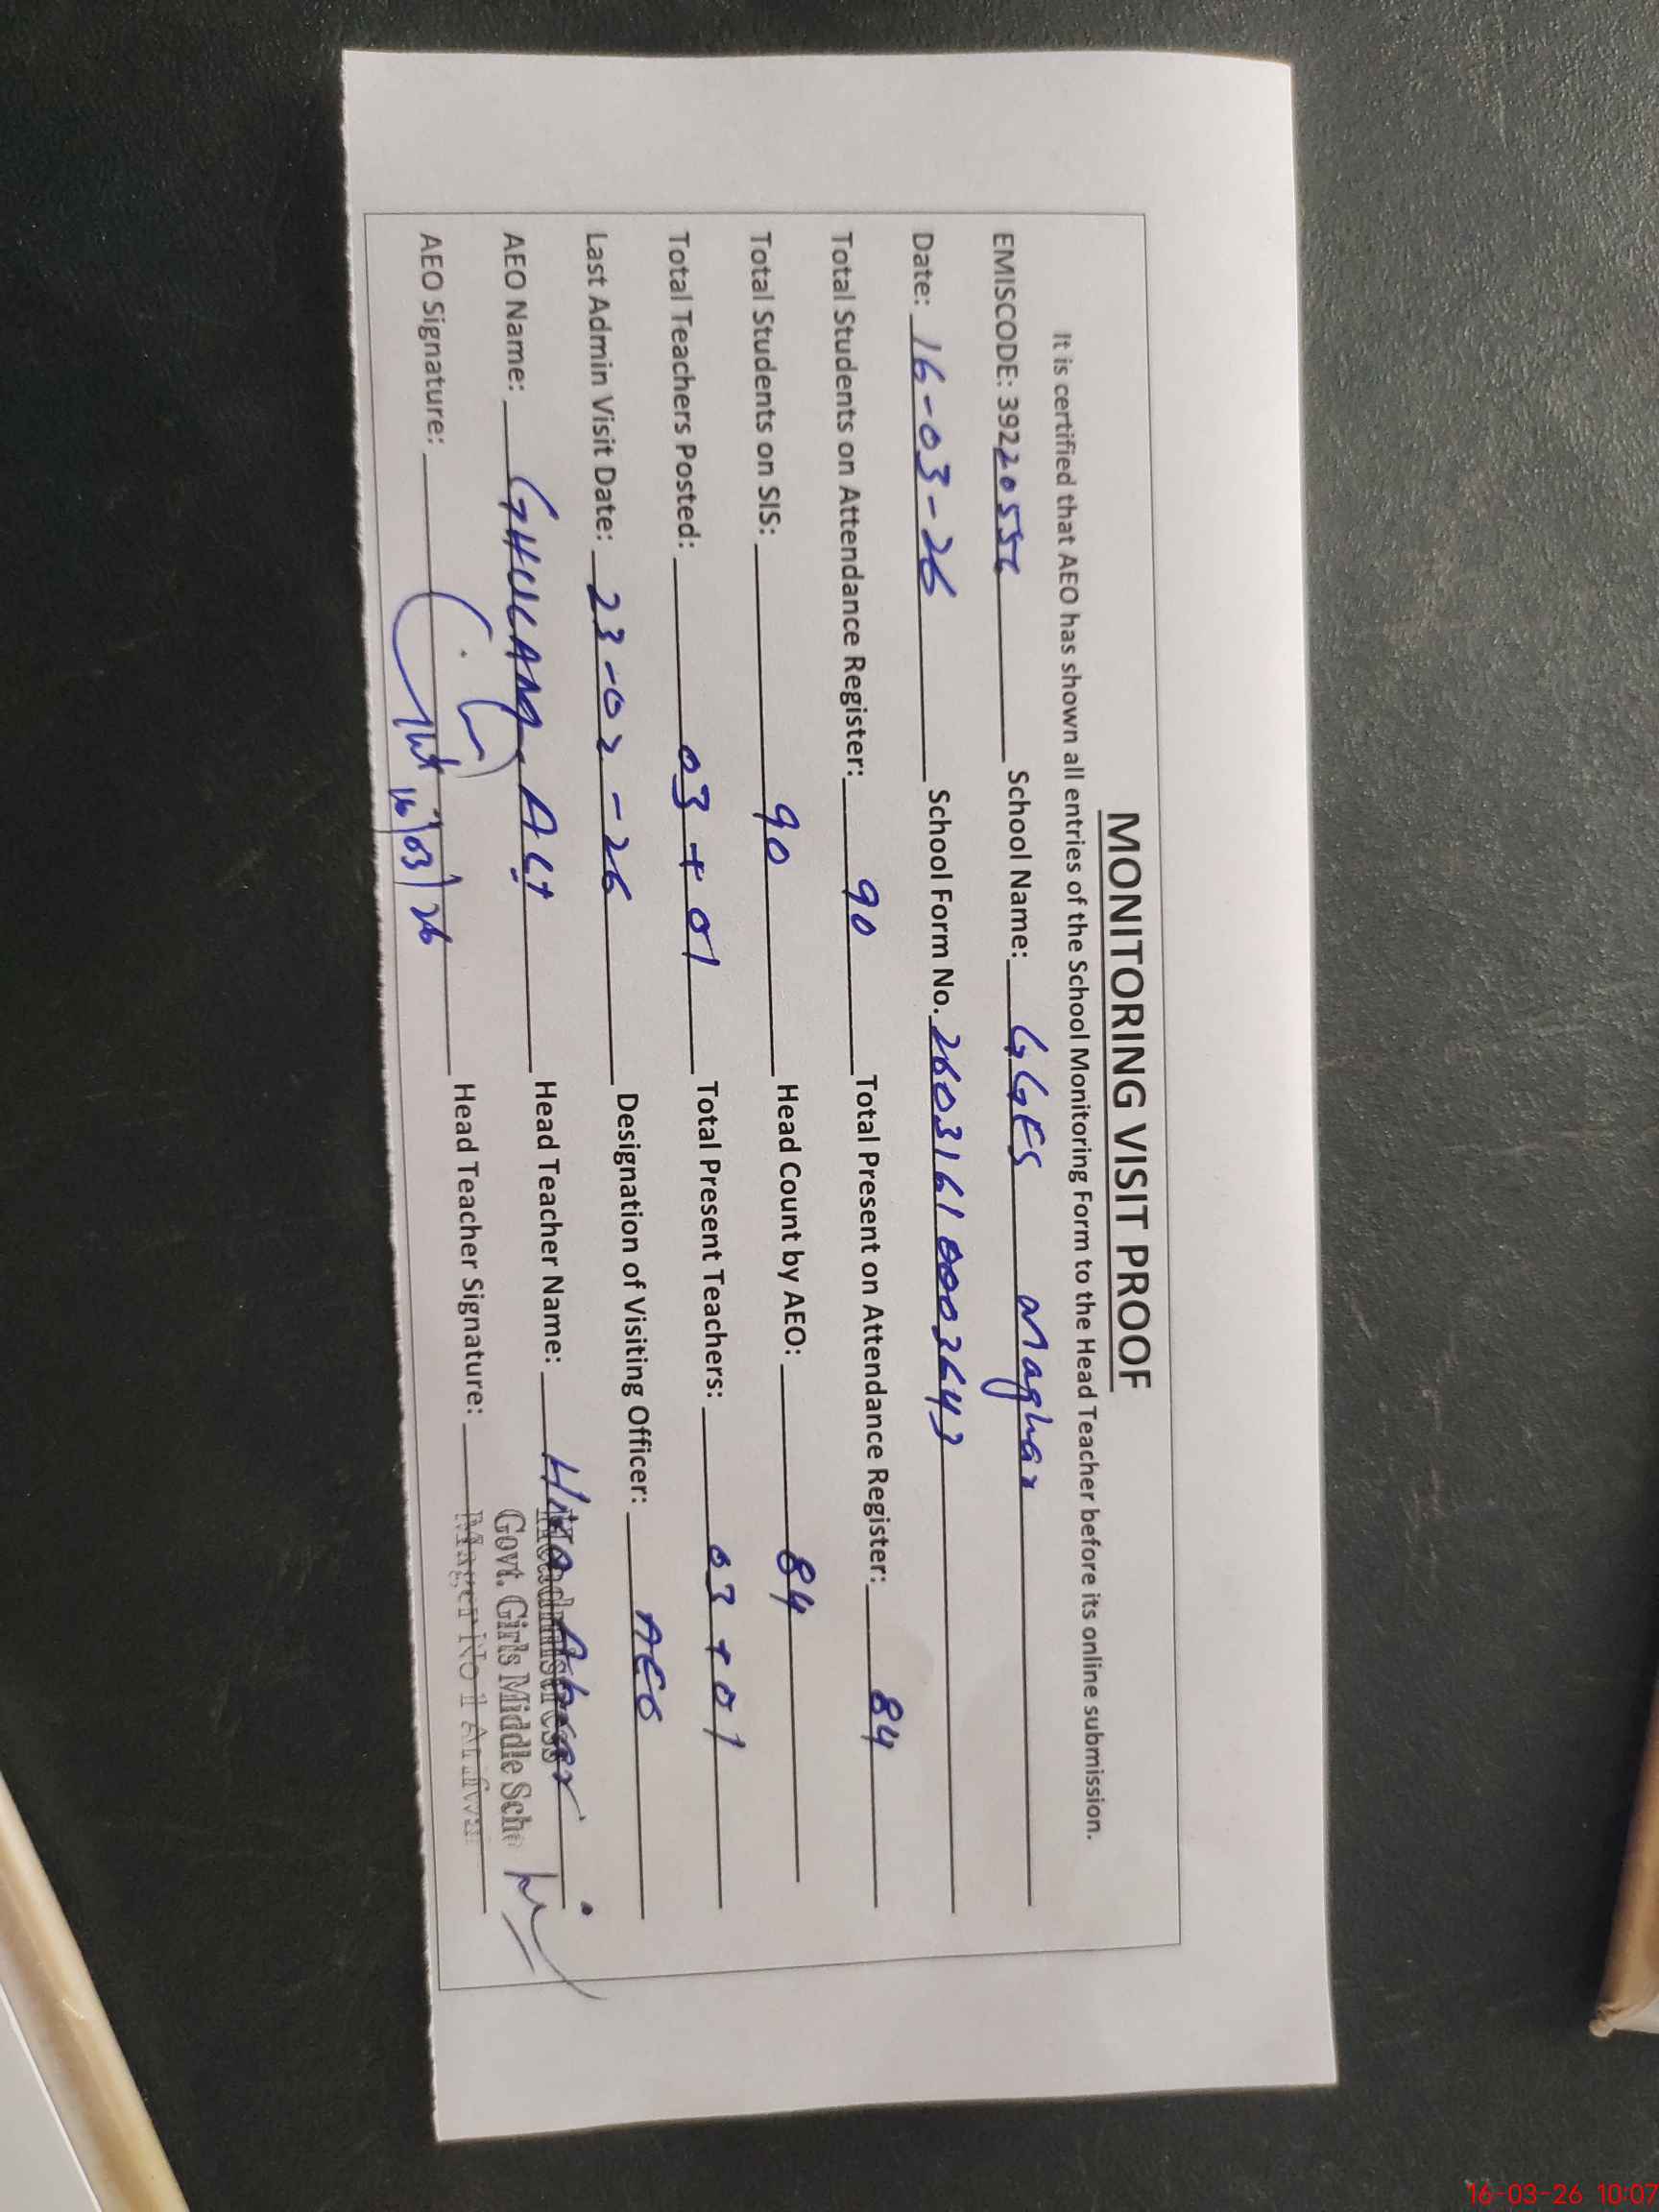 MONITORING VISIT PROOF
It is certified that AEO has shown all entries of the School Monitoring Form to the Head Teacher before its online submission.
EMISCODE: 39220556 School Name: GGES Maghar
Date: 16-03-26 School Form No. 26031610003643
Total Students on Attendance Register: 90 Total Present on Attendance Register: 84
Total Students on SIS: 90 Head Count by AEO: 84
Total Teachers Posted: 03 + 01 Total Present Teachers: 03 + 01
Last Admin Visit Date: 23-02-26 Designation of Visiting Officer: AEO
AEO Name: GHULAM ALI Head Teacher Name: Hira
Headmistress
Govt. Girls Middle Scho
AEO Signature: 16/03/26 Head Teacher Signature:
16-03-26 10:07